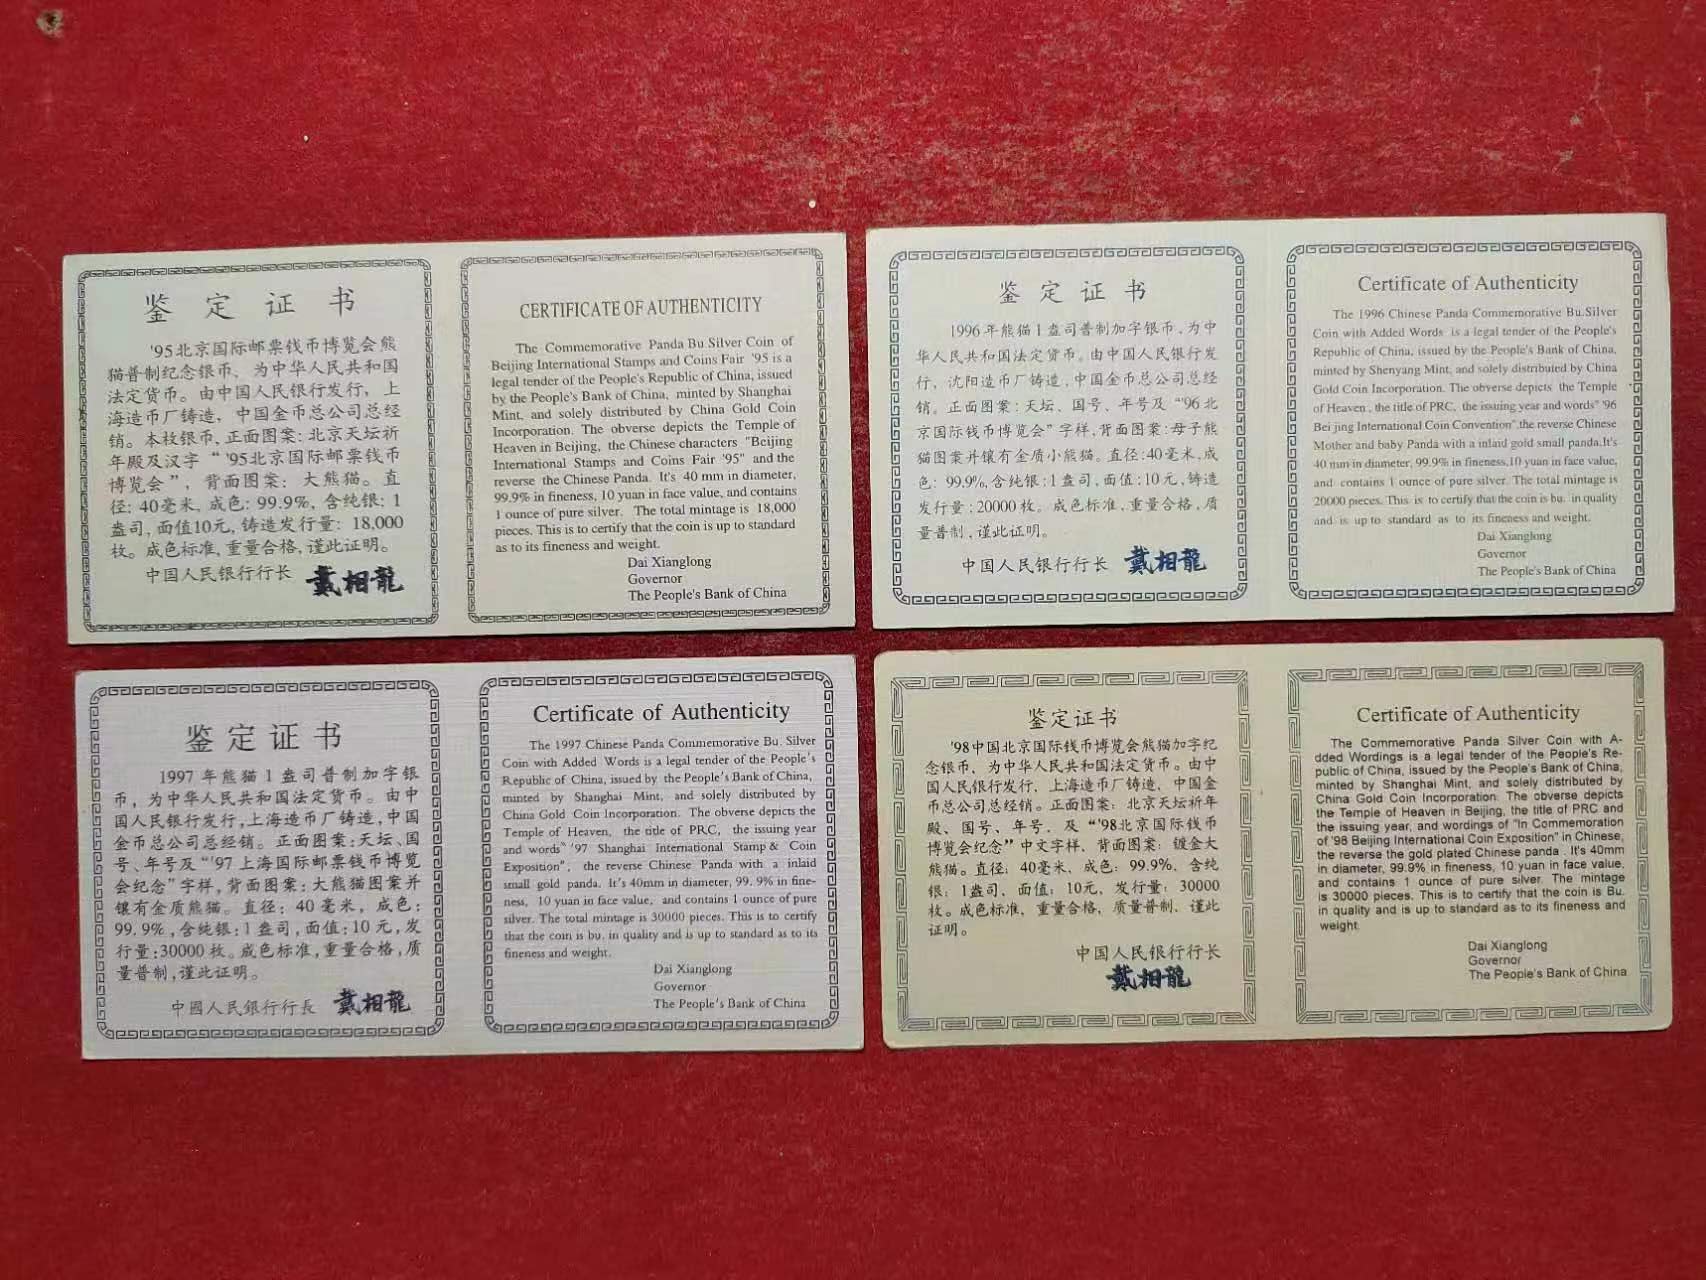 鉴定证书
'95北京国际邮票钱币博览会熊
猫普制纪念银币，为中华人民共和国
法定货币。由中国人民银行发行，上
海造币厂铸造，中国金币总公司总经
销。本枚银币，正面图案：北京天坛祈
年殿及汉字“'95北京国际邮票钱币
博览会”，背面图案：大熊猫。直
径：40毫米，成色：99.9%，含纯银：1
盎司，面值10元，铸造发行量：18,000
枚。成色标准，重量合格，谨此证明。
中国人民银行行长 戴相龍
CERTIFICATE OF AUTHENTICITY
The Commemorative Panda Bu.Silver Coin of
Beijing International Stamps and Coins Fair '95 is a
legal tender of the People's Republic of China, issued
by the People's Bank of China, minted by Shanghai
Mint, and solely distributed by China Gold Coin
Incorporation. The obverse depicts the Temple of
Heaven in Beijing, the Chinese characters "Beijing
International Stamps and Coins Fair '95" and the
reverse the Chinese Panda. It's 40 mm in diameter,
99.9% in fineness, 10 yuan in face value, and contains
1 ounce of pure silver. The total mintage is 18,000
pieces. This is to certify that the coin is up to standard
as to its fineness and weight.
Dai Xianglong
Governor
The People's Bank of China
鉴定证书
1996年熊猫1盎司普制加字银币，为中
华人民共和国法定货币。由中国人民银行发
行，沈阳造币厂铸造，中国金币总公司总经
销。正面图案：天坛、国号、年号及“'96北
京国际钱币博览会”字样，背面图案：母子熊
猫图案并镶有金质小熊猫。直径：40毫米，成
色：99.9%，含纯银：1盎司，面值：10元，铸造
发行量：20000枚。成色标准，重量合格，质
量普制，谨此证明。
中国人民银行行长 戴相龍
Certificate of Authenticity
The 1996 Chinese Panda Commemorative Bu.Silver
Coin with Added Words is a legal tender of the People's
Republic of China, issued by the People's Bank of China,
minted by Shenyang Mint, and solely distributed by China
Gold Coin Incorporation. The obverse depicts the Temple
of Heaven, the title of PRC, the issuing year and words" '96
Bei jing International Coin Convention",the reverse Chinese
Mother and baby Panda with a inlaid gold small panda.It's
40 mm in diameter, 99.9% in fineness,10 yuan in face value,
and contains 1 ounce of pure silver. The total mintage is
20000 pieces. This is to certify that the coin is bu. in quality
and is up to standard as to its fineness and weight.
Dai Xianglong
Governor
The People's Bank of China
鉴定证书
1997年熊猫1盎司普制加字银
币，为中华人民共和国法定货币。由中
国人民银行发行，上海造币厂铸造，中国
金币总公司总经销。正面图案：天坛、国
号、年号及“'97上海国际邮票钱币博览
会纪念”字样，背面图案：大熊猫图案并
镶有金质熊猫。直径：40毫米，成色：
99.9%，含纯银：1盎司，面值：10元，发
行量：30000枚。成色标准，重量合格，质
量普制，谨此证明。
中國人民銀行行長 戴相龍
Certificate of Authenticity
The 1997 Chinese Panda Commemorative Bu. Silver
Coin with Added Words is a legal tender of the People's
Republic of China, issued by the People's Bank of China,
minted by Shanghai Mint, and solely distributed by
China Gold Coin Incorporation. The obverse depicts the
Temple of Heaven, the title of PRC, the issuing year
and words" '97 Shanghai International Stamp & Coin
Exposition", the reverse Chinese Panda with a inlaid
small gold panda. It's 40mm in diameter, 99.9% in fine-
ness, 10 yuan in face value, and contains 1 ounce of pure
silver. The total mintage is 30000 pieces. This is to certify
that the coin is bu. in quality and is up to standard as to its
fineness and weight.
Dai Xianglong
Governor
The People's Bank of China
鉴定证书
'98中国北京国际钱币博览会熊猫加字纪
念银币，为中华人民共和国法定货币。由中
国人民银行发行，上海造币厂铸造，中国金
币总公司总经销。正面图案：北京天坛祈年
殿、国号、年号，及“'98北京国际钱币
博览会纪念”中文字样，背面图案：镀金大
熊猫。直径：40毫米，成色：99.9%，含纯
银：1盎司，面值：10元，发行量：30000
枚。成色标准，重量合格，质量普制，谨此
证明。
中国人民银行行长
戴相龍
Certificate of Authenticity
The Commemorative Panda Silver Coin with A-
dded Wordings is a legal tender of the People's Re-
public of China, issued by the People's Bank of China,
minted by Shanghai Mint, and solely distributed by
China Gold Coin Incorporation. The obverse depicts
the Temple of Heaven in Beijing, the title of PRC and
the issuing year, and wordings of "In Commemoration
of '98 Beijing International Coin Exposition" in Chinese,
the reverse the gold plated Chinese panda. It's 40mm
in diameter, 99.9% in fineness, 10 yuan in face value,
and contains 1 ounce of pure silver. The mintage
is 30000 pieces. This is to certify that the coin is Bu.
in quality and is up to standard as to its fineness and
weight.
Dai Xianglong
Governor
The People's Bank of China